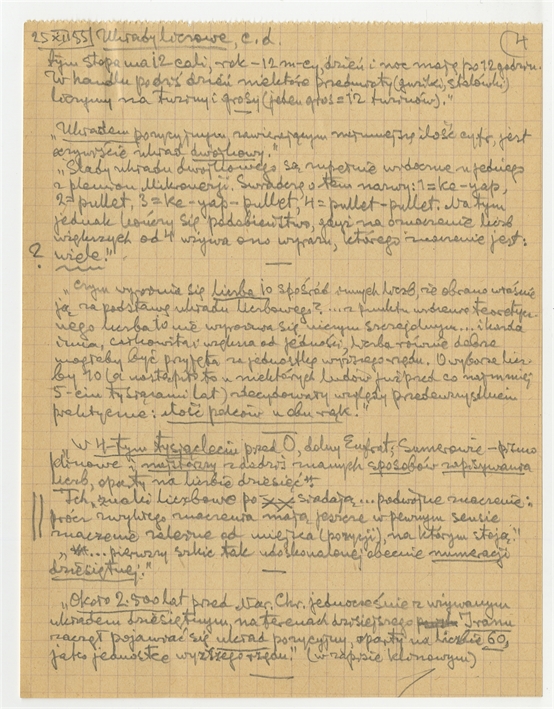 25 XII 55 | Układy liczowe, c. d. 4
tym stopa ma 12 cali, rok – 12 m-cy, dzień i noc mają po 12 godzin.
W handlu po dziś dzień niektóre przedmioty (guziki, stalówki)
liczymy na tuziny i grosy (jeden gros = 12 tuzinów)."
—
„Układem pozycyjnym, zawierającym najmniejszą ilość cyfr, jest
oczywiście układ dwójkowy."
„Ślady układu dwójkowego są zupełnie widoczne u jednego
z plemion Mikronezji. Świadczą o tem nazwy: 1 = ke-yap,
2 = pullet, 3 = ke-yap-pullet, 4 = pullet-pullet. Na tym
jednak kończy się podobieństwo, gdyż na oznaczenie liczb
większych od 4 używa ono wyrazu, którego znaczenie jest:
? wiele."
—
„Czym wyróżnia się liczba 10 spośród innych liczb, że obrano właśnie
ją za podstawę układu liczbowego? ... z punktu widzenia teoretycz-
nego liczba 10 nie wyróżnia się niczym szczególnym ... i każda
inna, całkowita i większa od jedności, liczba równie dobrze
mogłaby być przyjęta za jednostkę wyższego rzędu. O wyborze licz-
by 10 (a nastąpiło to u niektórych ludów już przed co najmniej
5-ciu tysiącami lat) zdecydowały względy przedewszystkiem
praktyczne: ilość palców u obu rąk."
—
„W 4-tym tysiącleciu przed 0, dolny Eufrat; Sumerowie – pismo
klinowe i najstarszy z dziś znanych sposobów zapisywania
liczb, oparty na liczbie dziesięć"
Ich „znaki liczbowe po siadają ... podwójne znaczenie:
prócz zwykłego znaczenia mają jeszcze w pewnym sensie
znaczenie zależne od miejsca (pozycji), na którym stoją."
„... pierwszy szkic tak udoskonalonej obecnie numeracji
dziesiętnej."
—
„Około 2.500 lat przed Nar. Chr. jednocześnie z używanym
układem dziesiętnym, na terenach dzisiejszego Iranu
zaczął pojawiać się układ pozycyjny, oparty na liczbie 60,
jako jednostce wyższego rzędu." (w zapisie klinowym)
—